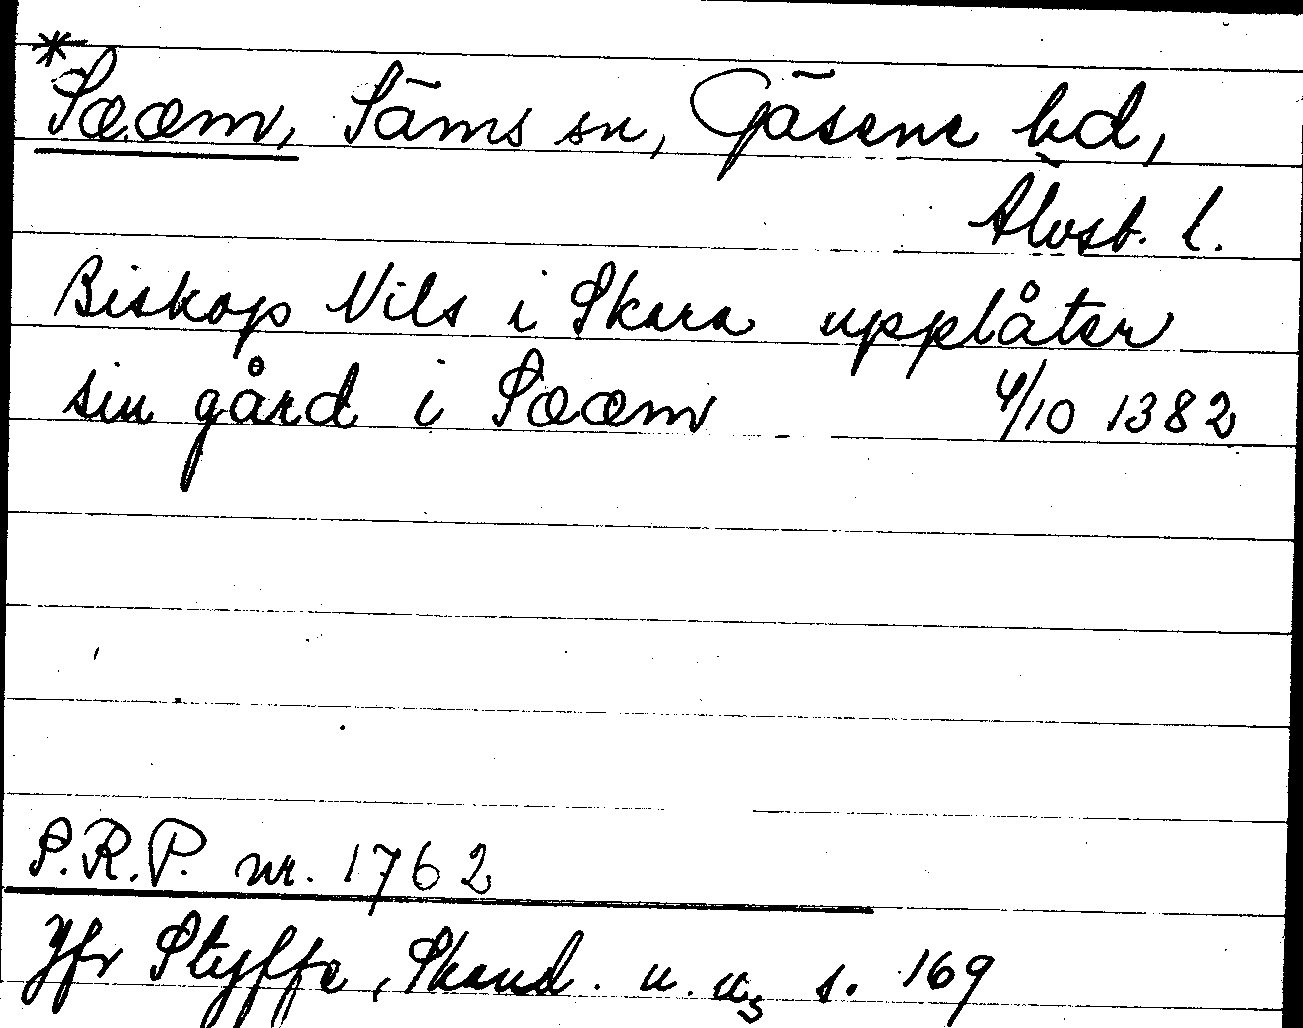 *Sææm, Säms sn, Gäsene hd,
Älvsb. l.
Biskop Nils i Skara upplåter
sin gård i Sææm 4/10 1382
S.R.P. nr. 1762
Jfr Styffe, Skand. u. u₃ s. 169